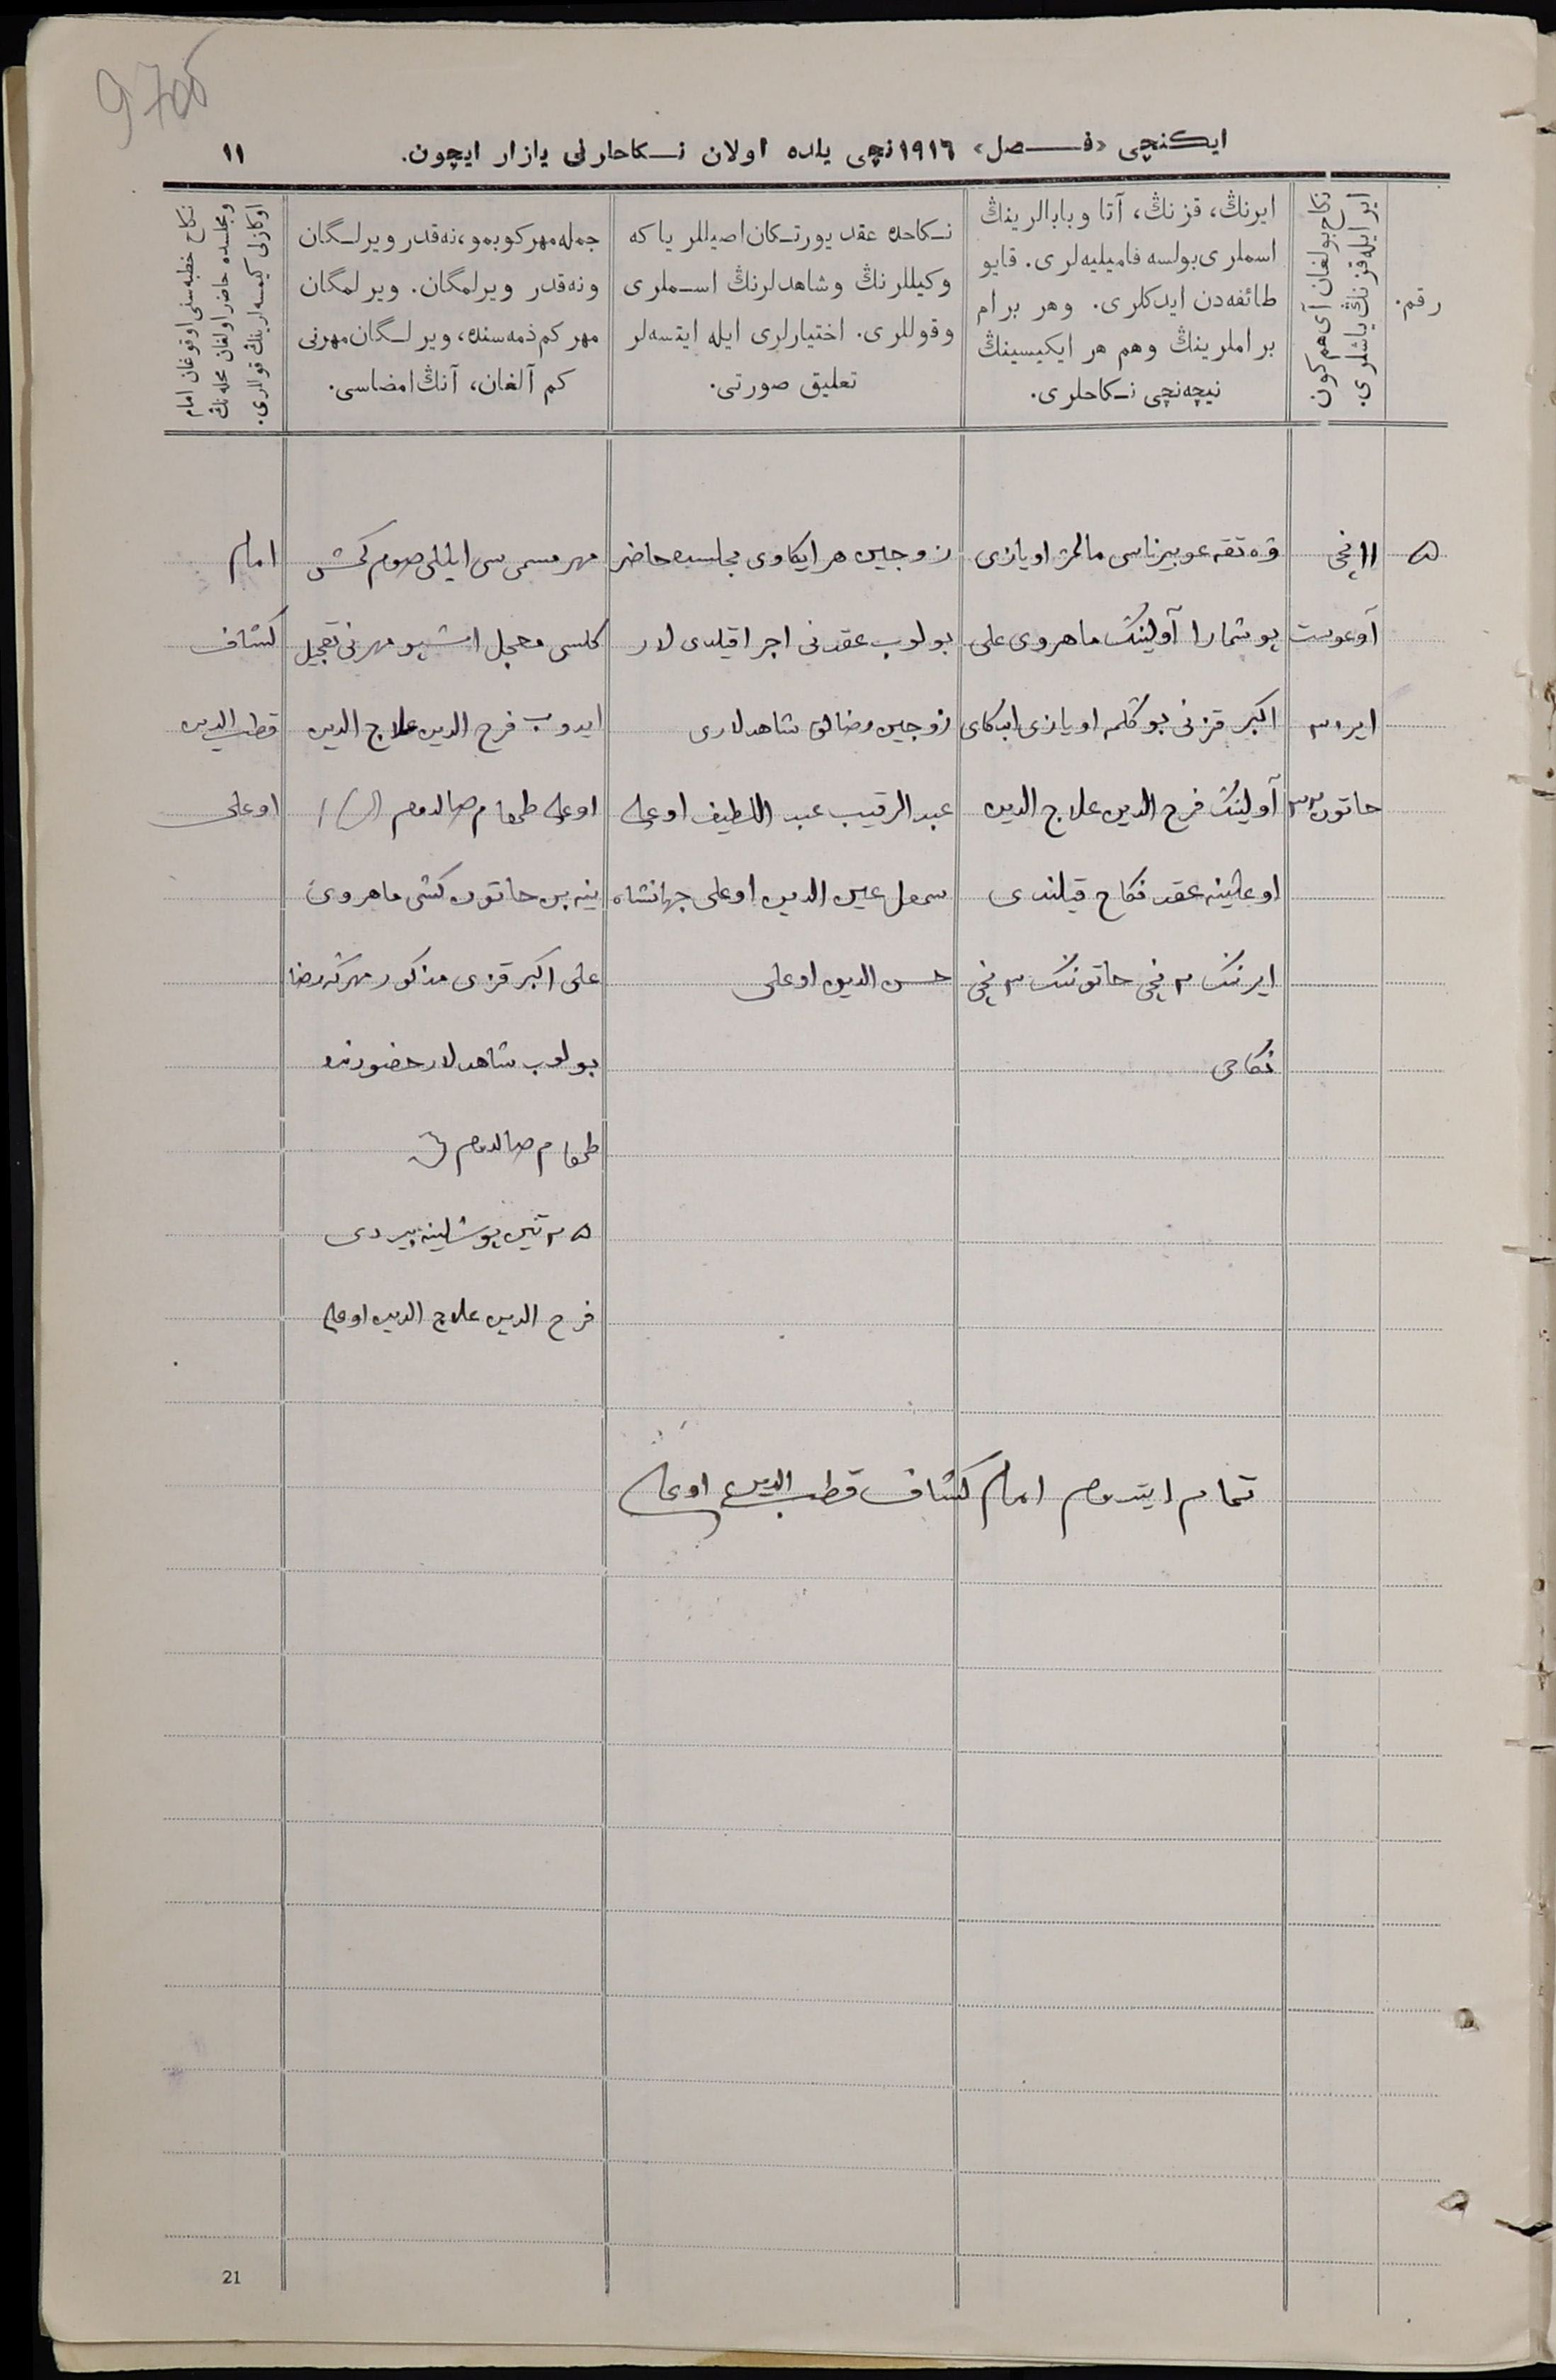 970б
ایکنچی «فصل» ١٩١٦ نچی یلده اولان نکاحلرنی یازار ایچون.
١١
رقم.
نکاح بولغان آی هم کون
ایر ایله قزنڭ یاشلری.
ایرنڭ، قزنڭ، آتا و بابالرینڭ
اسملری بولسه فامیلیه‌لری. قایو
طائفه‌دن ایدکلری. وهر برام
براملرینڭ وهم هر ایکیسینڭ
نیچه‌نچی نکاحلری.
نکاحده عقد یورتکان اصیللر یا که
وکیللرنڭ وشاهدلرنڭ اسملری
وقوللری. اختیارلری ایله ایتسه‌لر
تعلیق صورتی.
جمله مهر کوبمو، نه‌قدر ویرلگان
ونه‌قدر ویرلمگان. ویرلمگان
مهر کم ذمه‌سنده، ویرلگان مهرنی
کم آلغان، آنڭ امضاسی.
نکاح خطبه‌سنی اوقوغان امام
ومجلسده حاضر اولغان محله‌نڭ
اوکازنی کیمسه‌لرینڭ قوللری.
٥
١١ نچی
آوغوست
ایر ٣٠
خاتون ٣٣
عوبیرناسی مالمژ اویازی
یوشمارا آولینڭ ماهروی علی
اکبر قزنی بوگلمه اویازی
آولینڭ فرح الدین علاج الدین
اوغلینه عقد نکاح قیلندی
ایرنڭ ٢ نچی خاتوننڭ ٢ نچی
نکاحی
زوجین هر ایکاوی مجلسده حاضر
بولوب عقدنی اجرا قیلدی لار
زوجین رضالق شاهدلاری
عبد الرقیب عبد اللطیف اوغلی
عین الدین اوغلی جهانشاه
حسن الدین اوغلی
مهر مسمی سی ایللی صوم کمش
کلسی معجل اشبو مهرنی تعجیل
ایدوب فرح الدین علاج الدین
اوغلی طمغام صالدوم
ینه بن خاتون کشی ماهروی
علی اکبر قزی مذکور مهرگه رضا
بولوب شاهدلار حضورنده
طمغام صالدوم
٢٥ تین پوشلینه بیردی
فرح الدین علاج الدین اوغلی
امام
کشاف
قطب الدین
اوغلی
تمام ایتدوم امام کشاف قطب الدین اوغلی
21